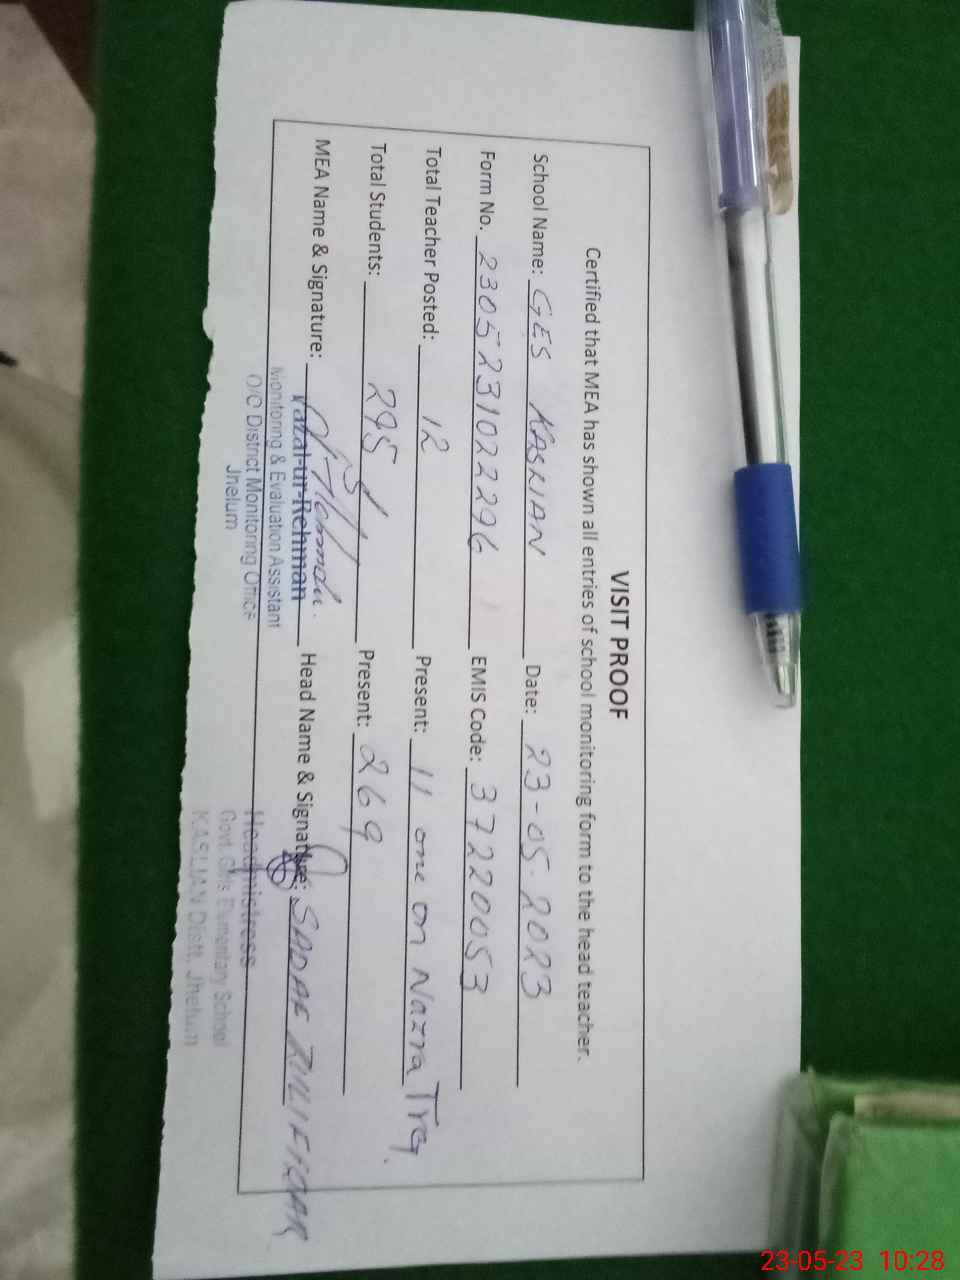 VISIT PROOF
Certified that MEA has shown all entries of school monitoring form to the head teacher.
School Name: GES KASRIAN Date: 23-05-2023
Form No. 230523102296 EMIS Code: 37220053
Total Teacher Posted: 12 Present: 11 one on Nazra Trg.
Total Students: 295 Present: 269
MEA Name & Signature: Head Name & Signature: SADAF ZULIFIQAR
-ur-Rehman
Monitoring & Evaluation Assistant
O/C District Monitoring Office
Jhelum
Headmistress
Govt. Girls Elementary School
KASLIAN Distt. Jhelum
23-05-23 10:28